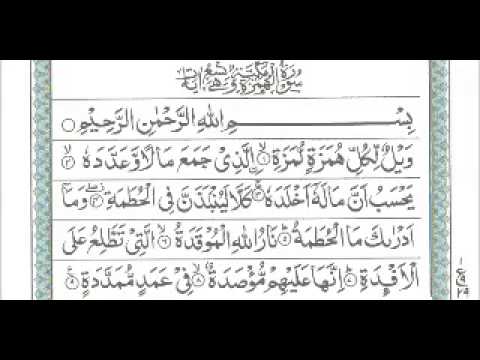 سورة الهمزة مكية وهي تسع آيات
بِسْمِ اللهِ الرَّحْمٰنِ الرَّحِيْمِ
وَيْلٌ لِّكُلِّ هُمَزَةٍ لُّمَزَةِ ۙ‏﴿۱﴾ اۨلَّذِىْ جَمَعَ مَالًا وَّعَدَّدَهٗ ۙ‏﴿۲﴾
يَحْسَبُ اَنَّ مَالَهٗۤ اَخْلَدَهٗ ۚ‏﴿۳﴾ كَلَّا لَيُنْۢبَذَنَّ فِى الْحُطَمَةِ ۖ‏﴿۴﴾ وَمَاۤ
اَدْرٰىكَ مَا الْحُطَمَةُ ؕ‏﴿۵﴾ نَارُ اللهِ الْمُوْقَدَةُ ۙ‏﴿۶﴾ الَّتِىْ تَطَّلِعُ عَلَى
الْاَفْـِٕدَةِ ؕ‏﴿۷﴾ اِنَّهَا عَلَيْهِمْ مُّؤْصَدَةٌ ۙ‏﴿۸﴾ فِىْ عَمَدٍ مُّمَدَّدَةٍ ‏﴿۹﴾
ع
۲۹